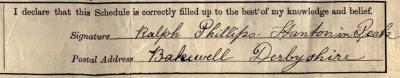 I declare that this Schedule is correctly filled up to the best of my knowledge and belief.
Signature Ralph Phillips Stanton in Peak
Postal Address Bakewell Derbyshire